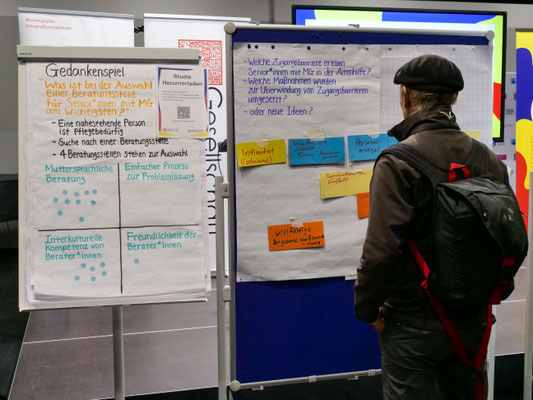 Kommunales
Integrationszentrum
Gedankenspiel
"Was ist bei der Auswahl
einer Beratungsstelle
für Senior*innen mit MG
am Wichtigsten?"
- Eine nahestehende Person
ist Pflegebedürftig
- Suche nach einer Beratungsstelle
- 4 Beratungsstellen stehen zur Auswahl
Muttersprachliche
Beratung
Einfacher Prozess
zur Problemlösung
Interkulturelle
Kompetenz von
Berater*innen
Freundlichkeit der
Berater*innen
Studie
Herunterladen
Gesellschaft
- Welche Zugangsbarriere erleben
Senior*innen mit MG in der Altenhilfe?
- Welche Maßnahmen wurden
zur Überwindung von Zugangsbarrieren
umgesetzt?
- oder neue Ideen?
Intimität
Personal
mangel
Vielfältige
Angebote